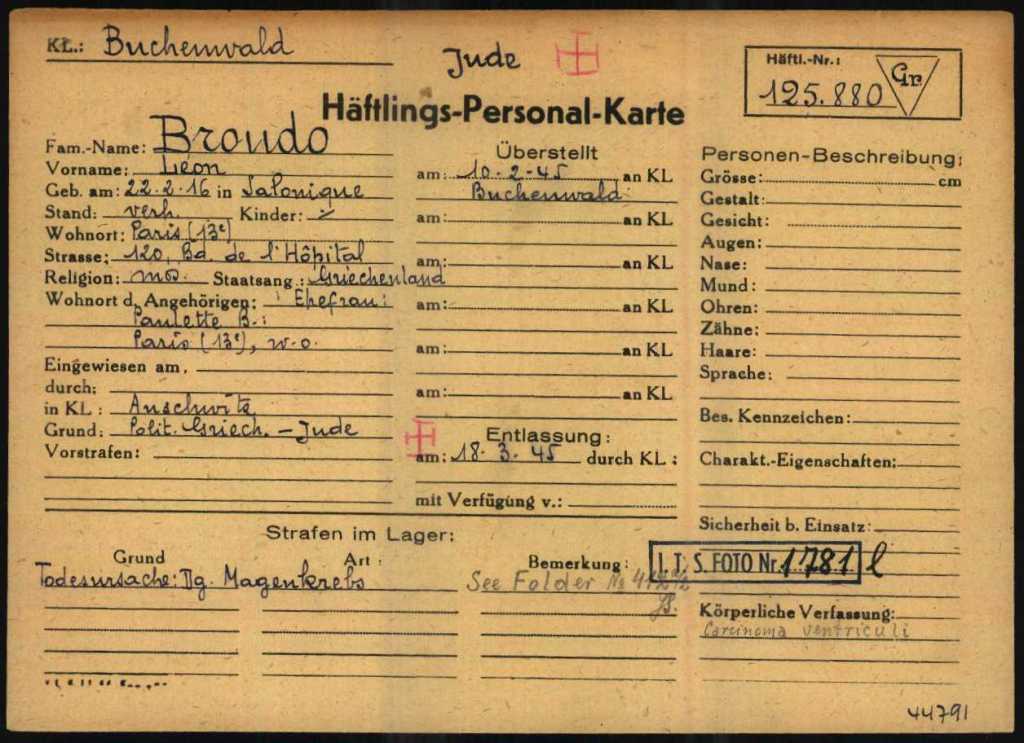 KL.: Buchenwald
Jude
Häftl.-Nr.:
125.880
Gr.
Häftlings-Personal-Karte
Fam.-Name: Brondo
Vorname: Léon
Geb. am: 22.2.16 in Salonique
Stand: verh. Kinder: -/-
Wohnort: Paris (13e)
Strasse: 120, Bd. de l'Hôpital
Religion: mos. Staatsang.: Griechenland
Wohnort d. Angehörigen: Ehefrau:
Paulette B.:
Paris (13e), w.o.
Eingewiesen am
durch:
in KL: Auschwitz
Grund: Polit. Griech. - Jude
Vorstrafen:
Überstellt
am: 10.2-45 an KL
Buchenwald
am: an KL
am: an KL
am: an KL
am: an KL
am: an KL
Entlassung:
am: 18.3.45 durch KL:
mit Verfügung v.:
Personen-Beschreibung:
Grösse: cm
Gestalt:
Gesicht:
Augen:
Nase:
Mund:
Ohren:
Zähne:
Haare:
Sprache:
Bes. Kennzeichen:
Charakt.-Eigenschaften:
Sicherheit b. Einsatz:
I.T.S. FOTO Nr. 1781 l
Körperliche Verfassung:
Carcinoma ventriculi
Strafen im Lager:
Grund Art: Bemerkung:
Todesursache: Dg. Magenkrebs
See Folder No
44791